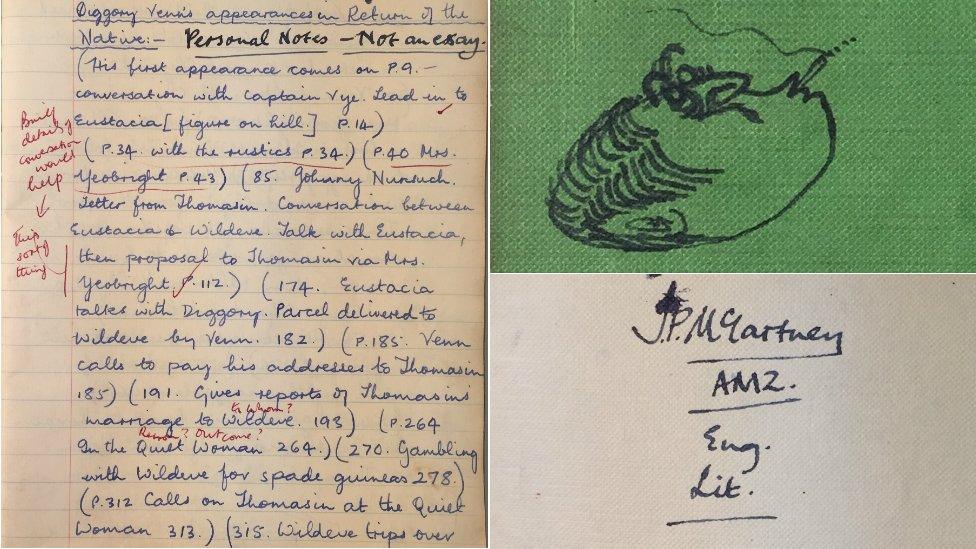 Diggory Venn's appearances in Return of the
Native:- Personal Notes - Not an essay.
(His first appearance comes on P.9. -
conversation with Captain Vye. Lead in to
Eustacia [figure on hill.] P.14)
(P.34. with the rustics P.34.) (P.40 Mrs.
Yeobright P.43) (85. Johnny Nunsuch.
Letter from Thomasin. Conversation between
Eustacia & Wildeve. Talk with Eustacia,
then proposal to Thomasin via Mrs.
Yeobright. P.112.) (174. Eustacia
talks with Diggory. Parcel delivered to
Wildeve by Venn. 182.) (P.185. Venn
calls to pay his addresses to Thomasin
185) (191. Gives reports of Thomasin's
to whom?
marriage to Wildeve. 193) (P.264
Reason? Outcome?
In the Quiet Woman 264.) (270. Gambling
with Wildeve for spade guineas 278.)
(P.312 Calls on Thomasin at the Quiet
Woman 313.) (315. Wildeve trips over
Brief
details of
conversation
would
help
This
sort of
thing
J.P. McCartney
AM2.
Eng.
Lit.